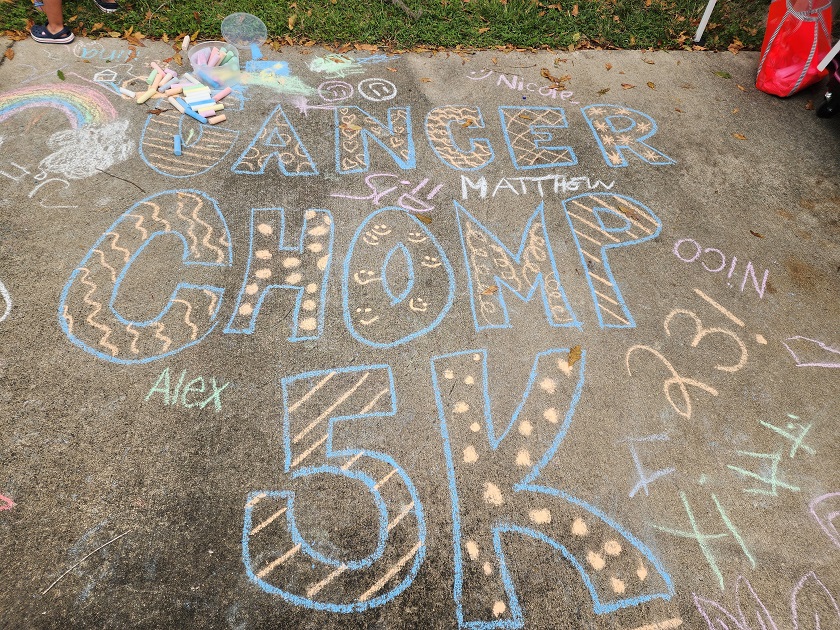 Nicole
CANCER
MATTHEW
CHOMP
Nico
23!
Alex
5K